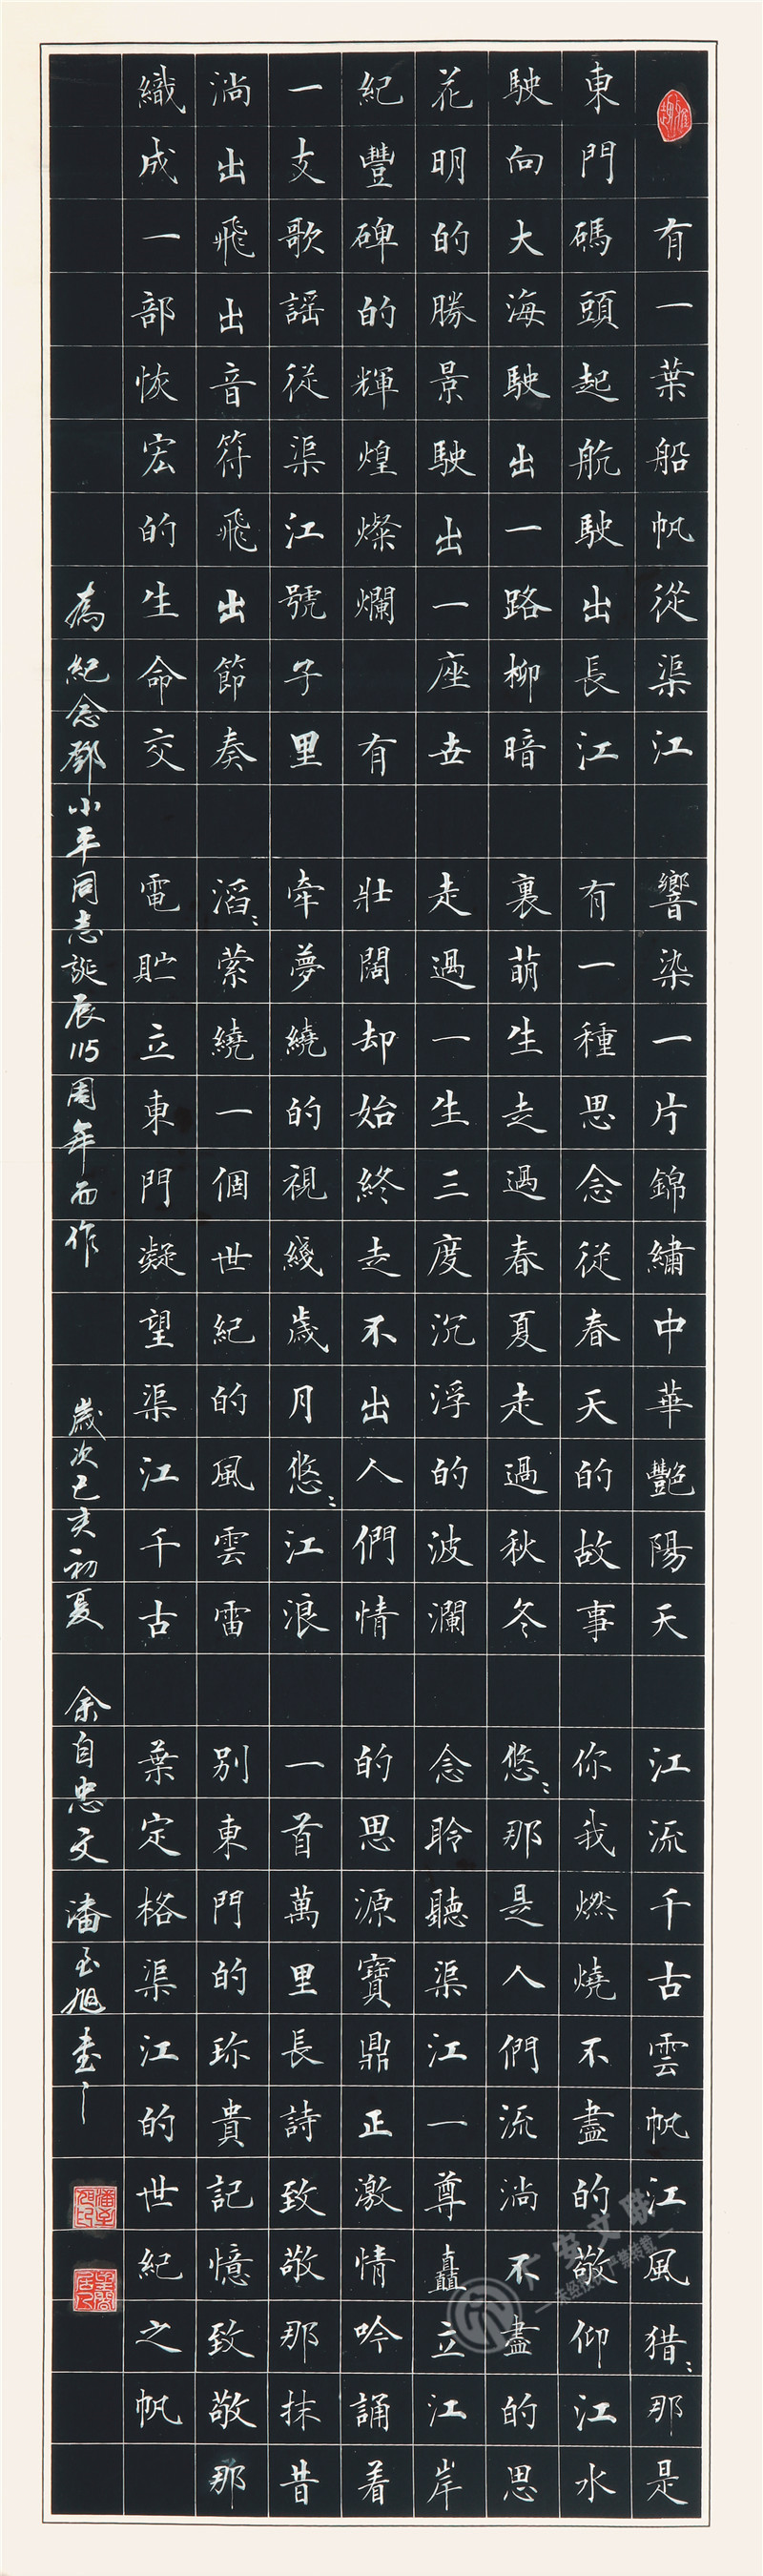 雅趣
有一葉船帆從渠江
東門碼頭起航駛出長江
駛向大海駛出一路柳暗
花明的勝景駛出一座世
紀豐碑的輝煌燦爛 有
一支歌謠從渠江號子里
淌出飛出音符飛出節奏
織成一部恢宏的生命交
響染一片錦繡中華艷陽天
有一種思念從春天的故事
裏萌生走過春夏走過秋冬
走過一生三度沉浮的波瀾
壯闊却始終走不出人們情
牽夢繞的視綫歲月悠〻江浪
滔〻縈繞一個世紀的風雲雷
電貯立東門凝望渠江千古
江流千古雲帆江風猎〻那是
你我燃燒不盡的敬仰江水
悠〻那是人們流淌不盡的思
念聆聽渠江一尊矗立江岸
的思源寶鼎正激情吟誦着
一首萬里長詩致敬那抹昔
別東門的珍貴記憶致敬那
葉定格渠江的世紀之帆
為紀念鄧小平同志誕辰115周年而作 歲次己亥初夏 余自忠文 潘至旭書
潘至旭印
广安文联
未经授权 严禁转载